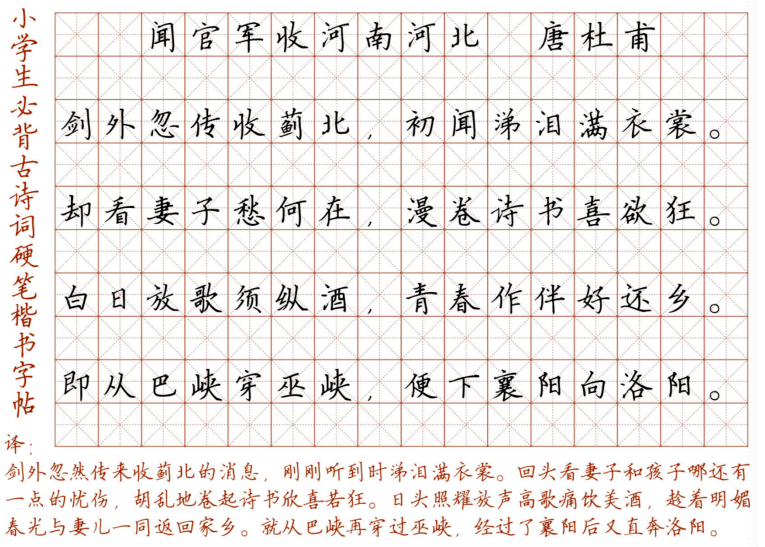 小学生必背古诗词硬笔楷书字帖
闻官军收河南河北 唐杜甫
剑外忽传收蓟北，初闻涕泪满衣裳。
却看妻子愁何在，漫卷诗书喜欲狂。
白日放歌须纵酒，青春作伴好还乡。
即从巴峡穿巫峡，便下襄阳向洛阳。
译：
剑外忽然传来收蓟北的消息，刚刚听到时涕泪满衣裳。回头看妻子和孩子哪还有
一点的忧伤，胡乱地卷起诗书欣喜若狂。日头照耀放声高歌痛饮美酒，趁着明媚
春光与妻儿一同返回家乡。就从巴峡再穿过巫峡，经过了襄阳后又直奔洛阳。